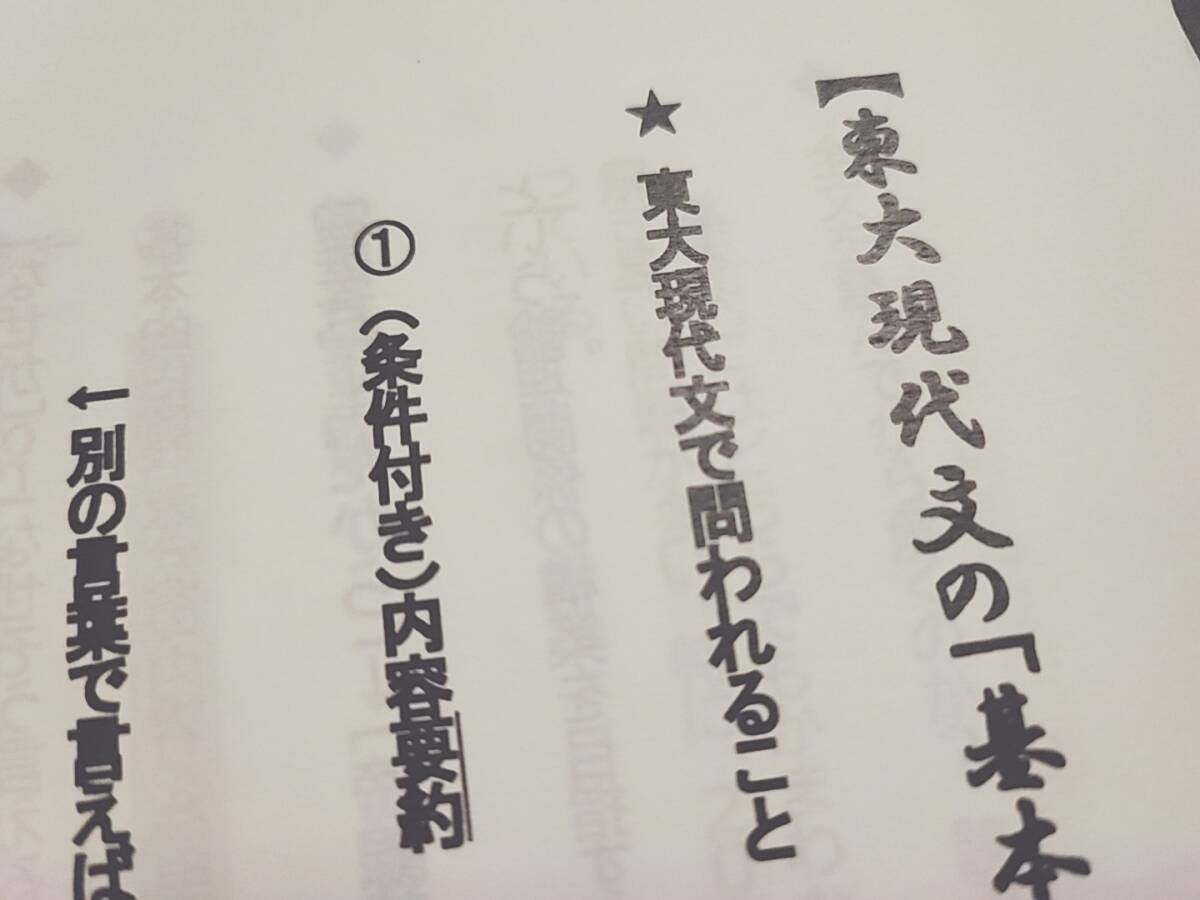 【東大現代文の「基本
★ 東大現代文で問われること
① (条件付き)内容要約
↑別の言葉で言えば